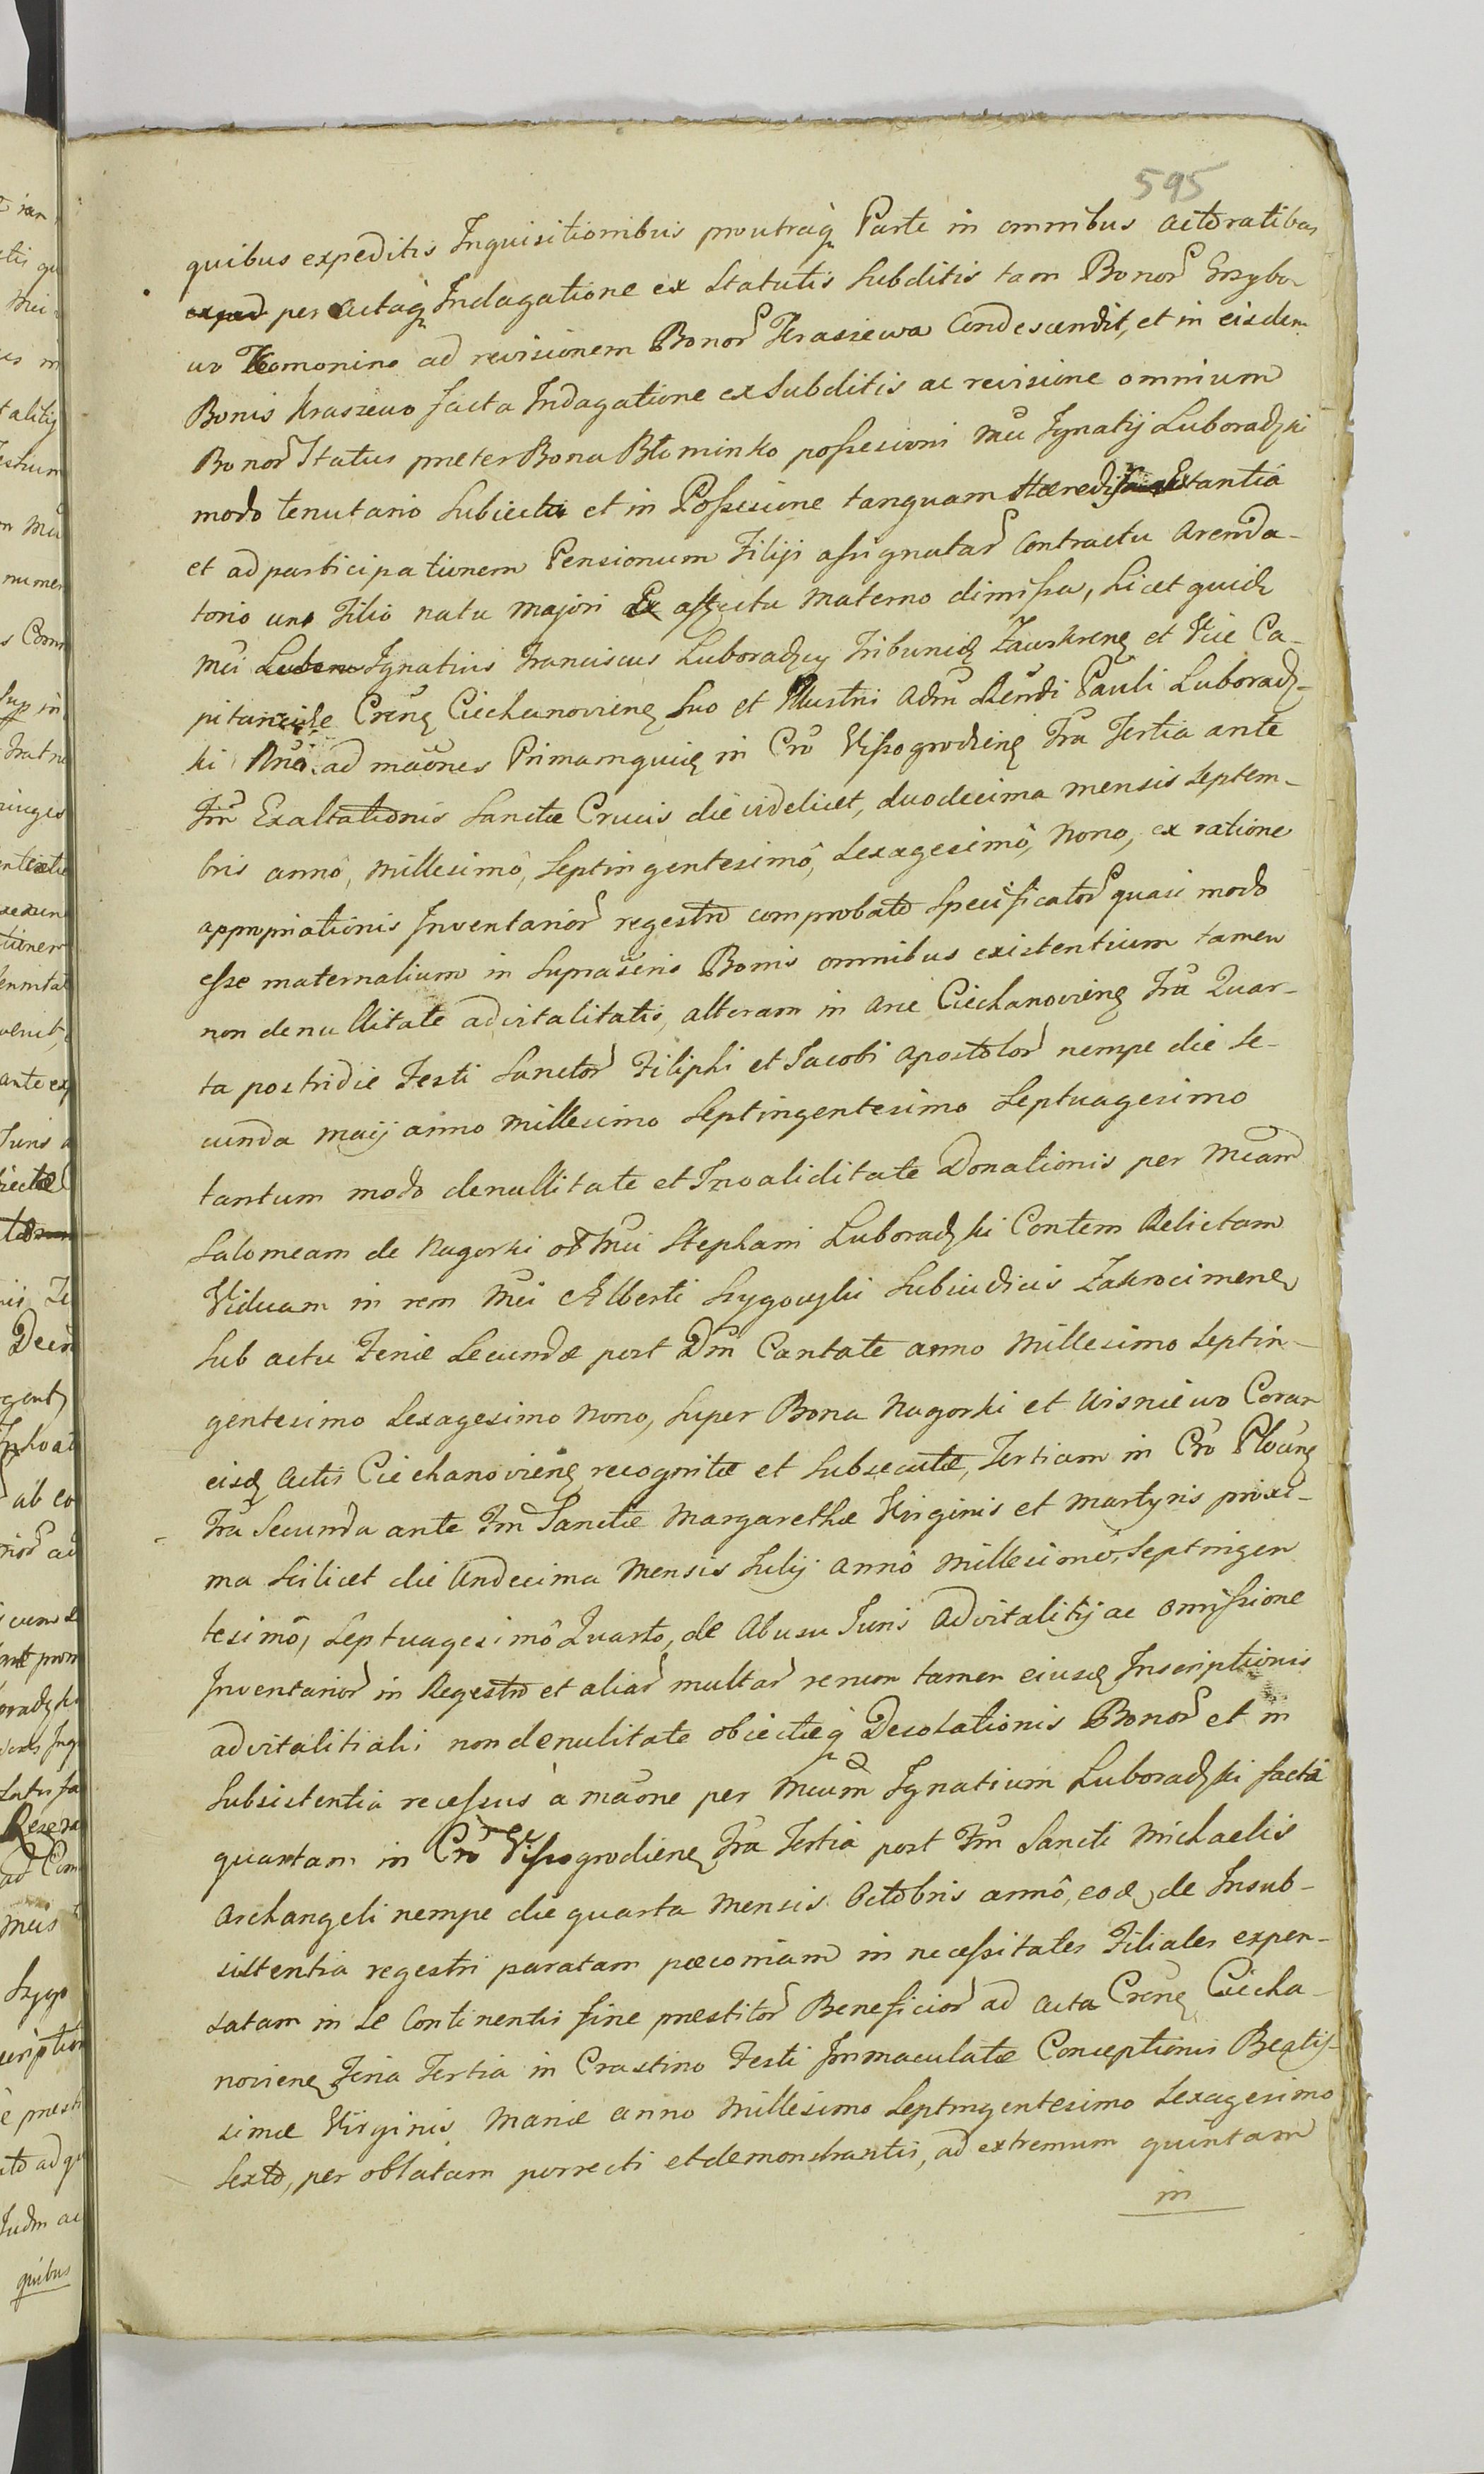 595
quibus expeditis Inquisitionibus pro utraq Parte in omnibus actoratibus
per Actaq Indagatione ex Statutis Subditis tam Bonor Grzybo
wo Komonino ad revisionem Bonor Kraszewa Condescendit, et in eisdem
Bonis Kraszewo facta Indagatione ex Subditis ac revisione omnium
Bonor Status preter Bona Błominko possesioni Mci Ignatij Luboradzki
modo tenutario Subiecta et in Possesione tanquam Hæredis Extantia
et ad participationem Pensionum Filiji assignatar Contractu Arenda-
torio uno Filio natu Majori Ex affectu Materno dimissa, Licet quidz
Mci Ignatius Franciscus Luboradzcy Tribunidz Zawskrenz et Vice Ca-
pitaneide Crenz Ciechanovienz Suo et Illustri Adm Rendi Pauli Luboradz-
ki ad maones Primamquidz in Cro Vissogrodzienz Fra Tertia ante
Fm Exaltationis Sanctæ Crucis die videlicet, duodecima mensis Septem-
bris annô, Millesimô, Septingentesimô, Sexagesimô, Nono, ex ratione
appropriationis Inventarior regestro comprobato Specificator quasi modo
esse maternalium in Suprascris Bonis omnibus existentium tamen
non de nullitate advitalitatis, alteram in Arce Ciechanovienz Fra Quar-
ta postridie Festi Sanctor Filiphi et Jacobi Apostolor nempe die Se-
cunda Maij anno Millesimo Septingentesimo Septuagesimo
tantum modo de nullitate et Invaliditate Donationis per Mcam
Salomeam de Nagorki ol Mci Stephani Luboradzki Contem Relictam
Viduam in rem Mci Alberti Szygowski Subiudicis Zakrocimenz
Sub actu Feriæ Secundæ post Dm Cantate anno Millesimo Septin-
gentesimo Sexagesimo Nono, Super Bona Nagorki et Wisniewo Coran
eisdz Actis Ciechanovienz recognitæ et Subsecutæ, Tertiam in Cro Plocenz
Fra Secunda ante Fm Sanctæ Margarethæ Virginis et Martyris proxi-
ma Scilicet die Undecima Mensis Julij Annô Millesimô, Septingen
tesimô, Septuagesimô Quarto, de Abusu Juris Advitalitij ac omissione
Inventarior in Regestro et aliar multar rerum tamen eiusdz Inscriptionis
advitalitiali non de nulitate obiectæq Desolationis Bonor et in
Subsistentia recessus à maone per Mcum Ignatium Luboradzki factâ
quartam in Cro Vissogrodienz Fra Tertia post Fm Sancti Michaelis
Archangeli nempe die quarta Mensis Octobris annô, eodz, de Insub-
sistentia regestri paratam pæconiam in necessitates Filiales expen-
satam in Se Continentis fine prestitor Beneficior ad Acta Crenz Ciecha-
novienz Feria Tertia in Crastino Festi Immaculatæ Conceptionis Beatis-
simæ Virginis Mariæ anno Millesimo Septingentesimo Sexagesimo
Sexto, per oblatam porrecti et demonstrantis, ad extremum quintam
in